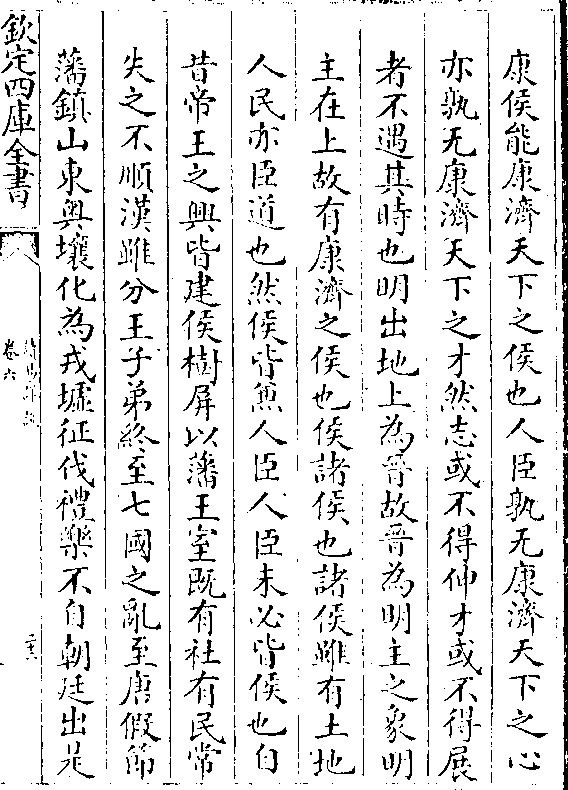 康侯能康濟天下之侯也人臣孰无康濟天下之心
亦孰无康濟天下之才然志或不得伸才或不得展
者不遇其時也明出地上為晉故晉為明主之象明
主在上故有康濟之侯也侯諸侯也諸侯雖有土地
人民亦臣道也然侯皆兼人臣人臣未必皆侯也自
昔帝王之興皆建侯樹屏以藩王室既有社有民常
失之不順漢雖分王子弟終至七國之亂至唐假節
藩鎮山東奥壤化為戎墟征伐禮樂不自朝廷出是
欽定四庫全書
卷六